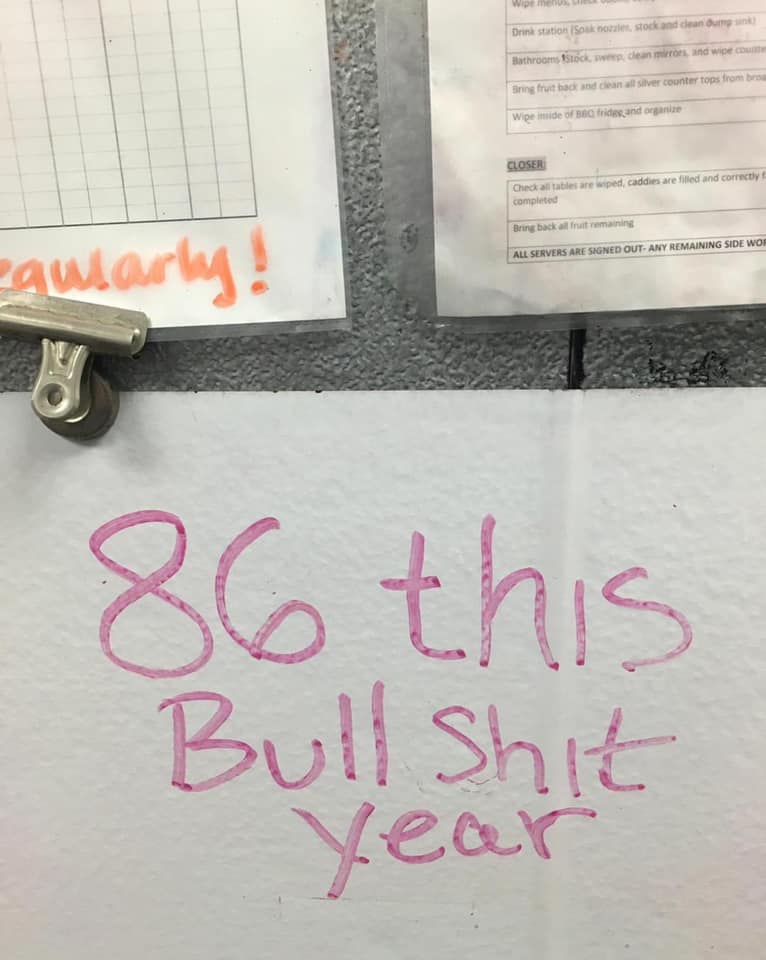 Wipe menus, check
Drink station (Soak nozzles, stock and clean dump sink)
Bathrooms Stock, sweep, clean mirrors, and wipe counte
Bring fruit back and clean all silver counter tops from broa
Wipe inside of BBQ fridge and organize
CLOSER:
Check all tables are wiped, caddies are filled and correctly f
completed
Bring back all fruit remaining
ALL SERVERS ARE SIGNED OUT- ANY REMAINING SIDE WOR
egularly!
86 this
Bull Shit
year